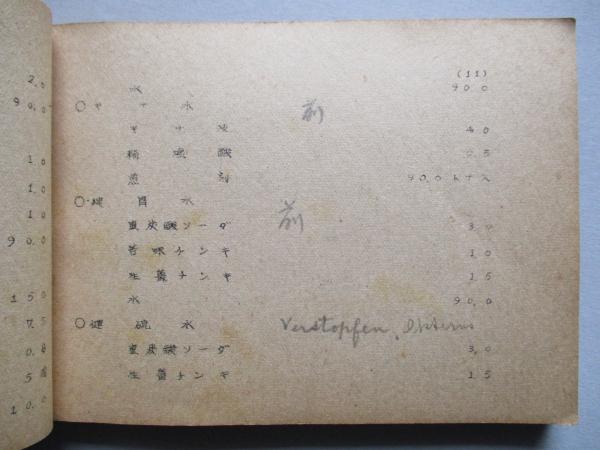 2.0
90.0
10
10
10
90.0
15.0
7.5
0.
5
10.
(11)
水 90.0
〇キナ水 前
キナ 4.0
稀塩酸 0.5
煎剤 90.0トナス
〇健胃水 前
重炭酸ソーダ 3.0
苦味チンキ 1.0
生薑チンキ 1.5
水 90.0
〇健硫水 Verstopfen,
重炭酸ソーダ 3.0
生薑チンキ 1.5